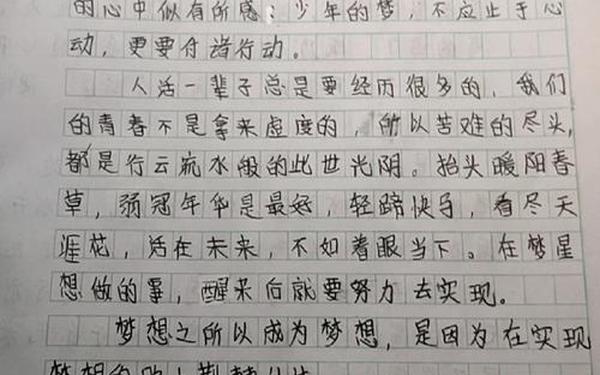 的心中似有所感：少年的梦，不应止于心
动，更要付诸行动。
人活一辈子总是要经历很多的，我们
的青春不是拿来虚度的，所以苦难的尽头，
都是行云流水般的此世光阴。抬头暖阳春
草，弱冠年华是最好，轻蹄快马，看尽天
涯花，活在未来，不如着眼当下。在梦里
想做的事，醒来后就要努力去实现。
梦想之所以成为梦想，是因为在实现
梦想的路上荆棘